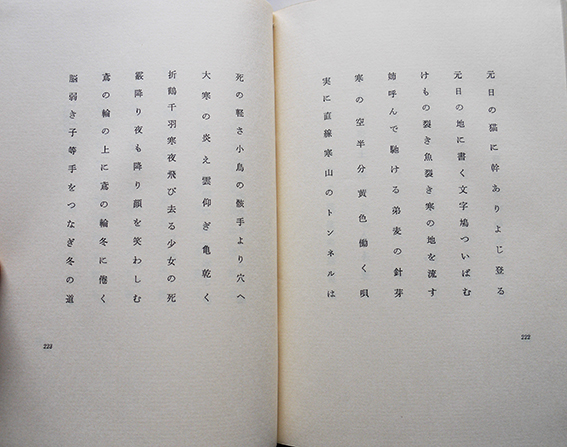 元日の猫に幹ありよじ登る
元日の地に書く文字鳩ついばむ
けもの裂き魚裂き寒の地を流す
姉呼んで馳ける弟麦の針芽
寒の空半分黄色働く唄
実に直線寒山のトンネルは
222
死の軽さ小鳥の骸手より穴へ
大寒の炎え雲仰ぎ亀乾く
折鶴千羽寒夜飛び去る少女の死
霰降り夜も降り顔を笑わしむ
鳶の輪の上に鳶の輪冬に倦く
脳弱き子等手をつなぎ冬の道
223